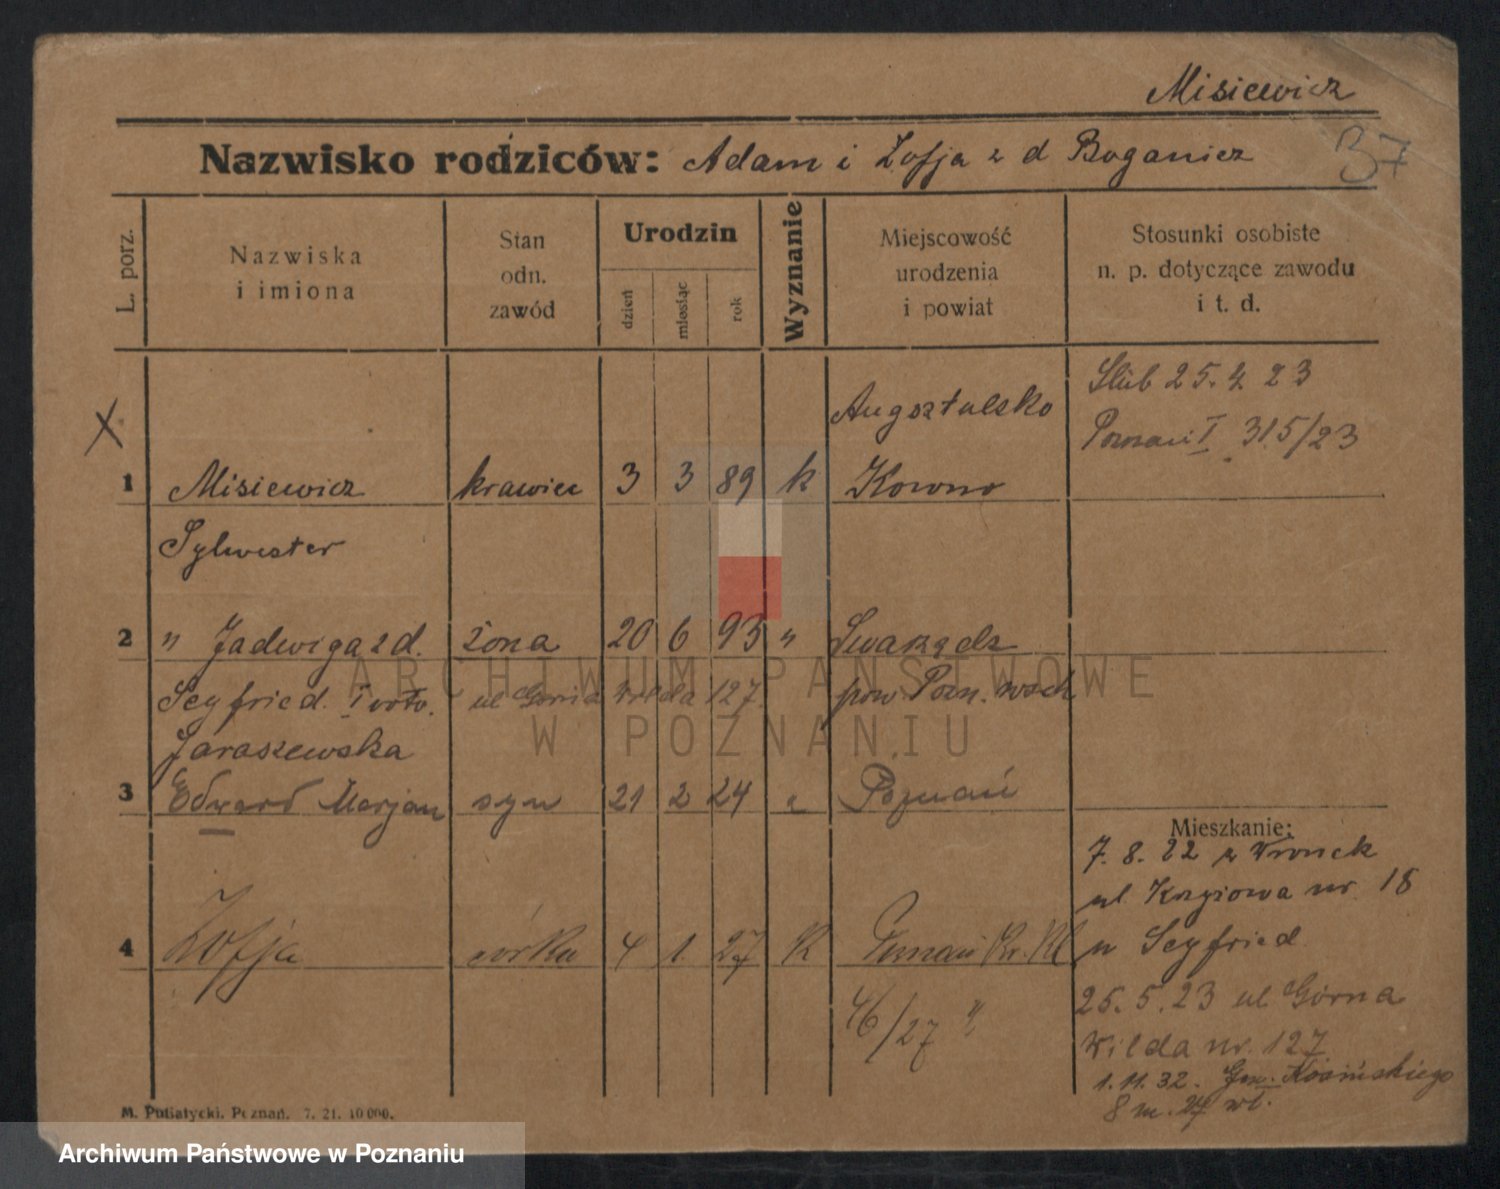 Misiewicz
37
Nazwisko rodziców: Adam i Zofja z d Boganicz
L. porz.
Nazwiska
i imiona
Stan
odn.
zawód
Urodzin
dzień
miesiąc
rok
Wyznanie
Miejscowość
urodzenia
i powiat
Stosunki osobiste
n. p. dotyczące zawodu
i t. d.
Ślub 25. 4 23
Augsztulsko
Poznań I 315/23
X
1 Misiewicz krawiec 3 3 89 k Kowno
Sylwester
2 " Jadwiga z d. żona 20 6 93 " Swarzędz
Seyfried. I voto. ul Górna Wilda 127 pow. Pozn. wsch
Jaraszewska
3 Edward Marjan syn 21 2 24 " Poznań
Mieszkanie:
7. 8. 22 z Wronek
ul Krzyżowa nr 18
4 Zofja córka 4 1. 27 K Poznań
u Seyfried
46/27 "
25. 5. 23 ul Górna
Wilda nr. 127
1. 11. 32. Kosińskiego
8 m. wł.
M. Putiatycki, Poznań. 7. 21. 10 000.
ARCHIWUM PAŃSTWOWE
W POZNANIU
Archiwum Państwowe w Poznaniu